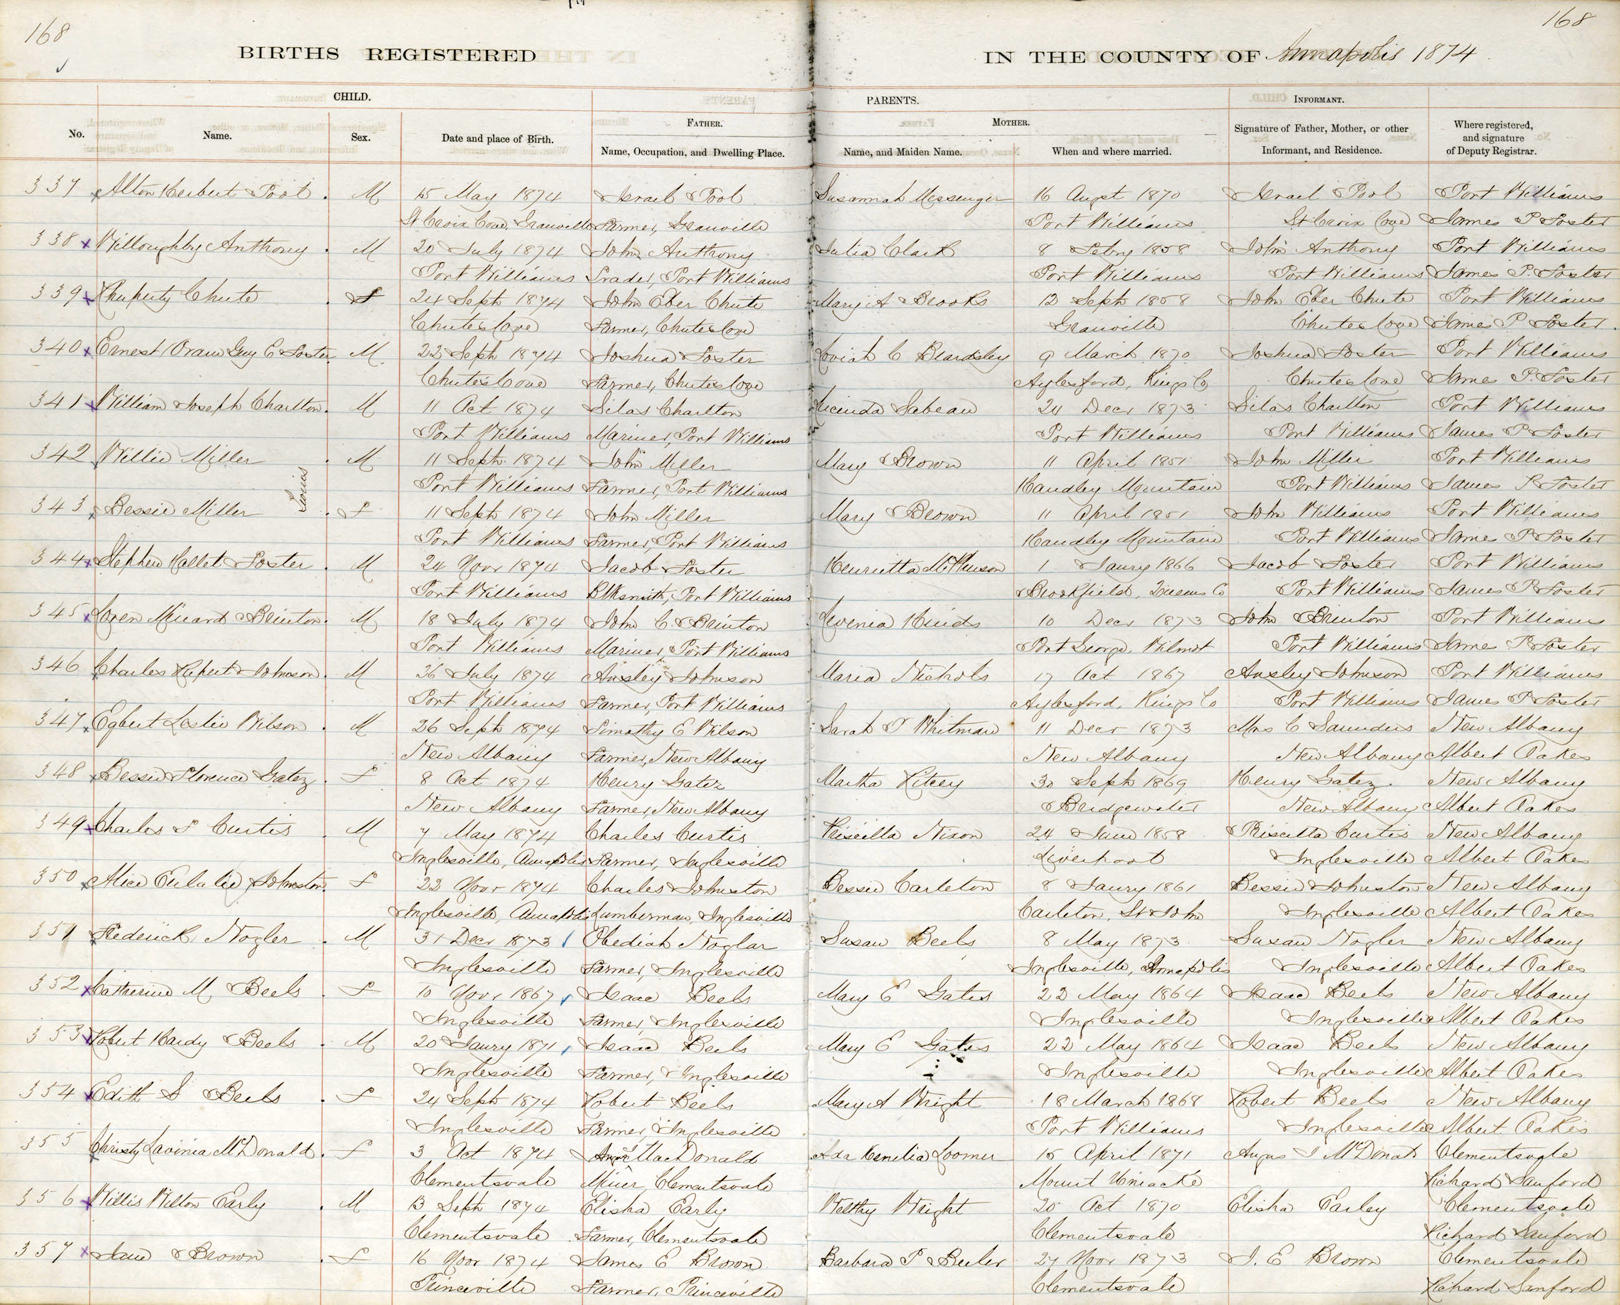 168
168
BIRTHS REGISTERED IN THE COUNTY OF Annapolis 1874
CHILD. PARENTS. INFORMANT.
FATHER. MOTHER.
No. Name. Sex. Date and place of Birth. Name, Occupation, and Dwelling Place. Name, and Maiden Name. When and where married. Signature of Father, Mother, or other Informant, and Residence. Where registered, and signature of Deputy Registrar.
337 Alton Herbert Pool M 15 May 1874 Israel Pool Susannah Messenger 16 Augst 1870 Israel Pool Port Williams
St Croix Cove Granville Farmer, Granville Port Williams St Croix Cove James P Foster
338 Willoughby Anthony M 20 July 1874 John Anthony Julia Clark 8 Febry 1858 John Anthony Port Williams
Port Williams Trader, Port Williams Port Williams Port Williams James P Foster
339 Chute f 24 Sept 1874 John Eber Chute Mary A Brooks 12 Sept 1858 John Eber Chute Port Williams
Chutes Cove Farmer, Chutes Cove Granville Chutes Cove James P Foster
340 Ernest Oram Guy C Foster M 22 Sept 1874 Joshua Foster C Beardsley 9 March 1870 Joshua Foster Port Williams
Chutes Cove Farmer, Chutes Cove Aylesford, Kings Co Chutes Cove James P Foster
341 William Joseph Charlton M 11 Oct 1874 Silas Charlton Lucinda Sabean 24 Decr 1873 Silas Charlton Port Williams
Port Williams Mariner, Port Williams Port Williams Port Williams James P Foster
342 Willie Miller M 11 Sept 1874 John Miller Mary Brown 11 April 1851 John Miller Port Williams
Port Williams Farmer, Port Williams Handley Mountain Port Williams James P Foster
Twins
343 Bessie Miller f 11 Sept 1874 John Miller Mary Brown 11 April 1851 John Williams Port Williams
Port Williams Farmer, Port Williams Handley Mountain Port Williams James P Foster
344 Stephen Hallet Foster M 24 Novr 1874 Jacob Foster Henrietta 1 Janry 1866 Jacob Foster Port Williams
Port Williams Blksmith, Port Williams Brookfield, Queens Co Port Williams James P Foster
345 Loren Minard Brinton M 18 July 1874 John C Brinton Lovenia Hinds 10 Decr 1873 John Brinton Port Williams
Port Williams Mariner, Port Williams Port George, Wilmot Port Williams James P Foster
346 Charles Rupert Johnson M 26 July 1874 Ansley Johnson Maria Nichols 17 Oct 1867 Ansley Johnson Port Williams
Port Williams Farmer, Port Williams Aylesford, Kings Co Port Williams James P Foster
347 Egbert Leslie Wilson M 26 Sept 1874 Timothy E Wilson Sarah T Whitman 11 Decr 1873 Mrs C Saunders New Albany
New Albany Farmer, New Albany New Albany New Albany Albert Oakes
348 Bessie Florence Gatez f 8 Oct 1874 Henry Gatez Martha 30 Sept 1869 Henry Gatez New Albany
New Albany Farmer, New Albany Bridgewater New Albany Albert Oakes
349 Charles S Curtis M 7 May 1874 Charles Curtis Priscilla Nixon 24 June 1858 Priscilla Curtis New Albany
Inglesville, Annapolis Farmer, Inglesville Liverpool Inglesville Albert Oakes
350 Alice Johnston f 22 Novr 1874 Charles Johnston Bessie Carleton 8 Janry 1861 Bessie Johnston New Albany
Inglesville, Annapolis Lumberman, Inglesville Carleton, St John Inglesville Albert Oakes
351 Frederick Nogler M 31 Decr 1873 Obediah Noglar Susan Beels 8 May 1873 Susan Nogler New Albany
Inglesville Farmer, Inglesville Inglesville, Annapolis Inglesville Albert Oakes
352 Catherine M Beels f 10 Novr 1867 Isaac Beels Mary E Gates 22 May 1864 Isaac Beels New Albany
Inglesville Farmer, Inglesville Inglesville Inglesville Albert Oakes
353 Robert Hardy Beels M 20 Janry 1871 Isaac Beels Mary E Gates 22 May 1864 Isaac Beels New Albany
Inglesville Farmer, Inglesville Inglesville Inglesville Albert Oakes
354 Edith S Beels f 24 Sept 1874 Robert Beels Mary A Wright 18 March 1868 Robert Beels New Albany
Inglesville Farmer Inglesville Port Williams Inglesville Albert Oakes
355 Christy Lavinia McDonald f 3 Oct 1874 MacDonald Ada Loomer 15 April 1871 Angus J McDonald Clementsvale
Clementsvale Miner, Clementsvale Mount Uniacke Richard Sanford
356 Willis Wilton Early M 13 Sept 1874 Elisha Early Wealthy Wright 20 Oct 1870 Elisha Earley Clementsvale
Clementsvale Farmer, Clementsvale Clementsvale Richard Sanford
357 Jane Brown f 16 Novr 1874 James E Brown Barbara P Beeler 27 Novr 1873 J. E Brown Clementsvale
Princeville Farmer, Princeville Clementsvale Richard Sanford